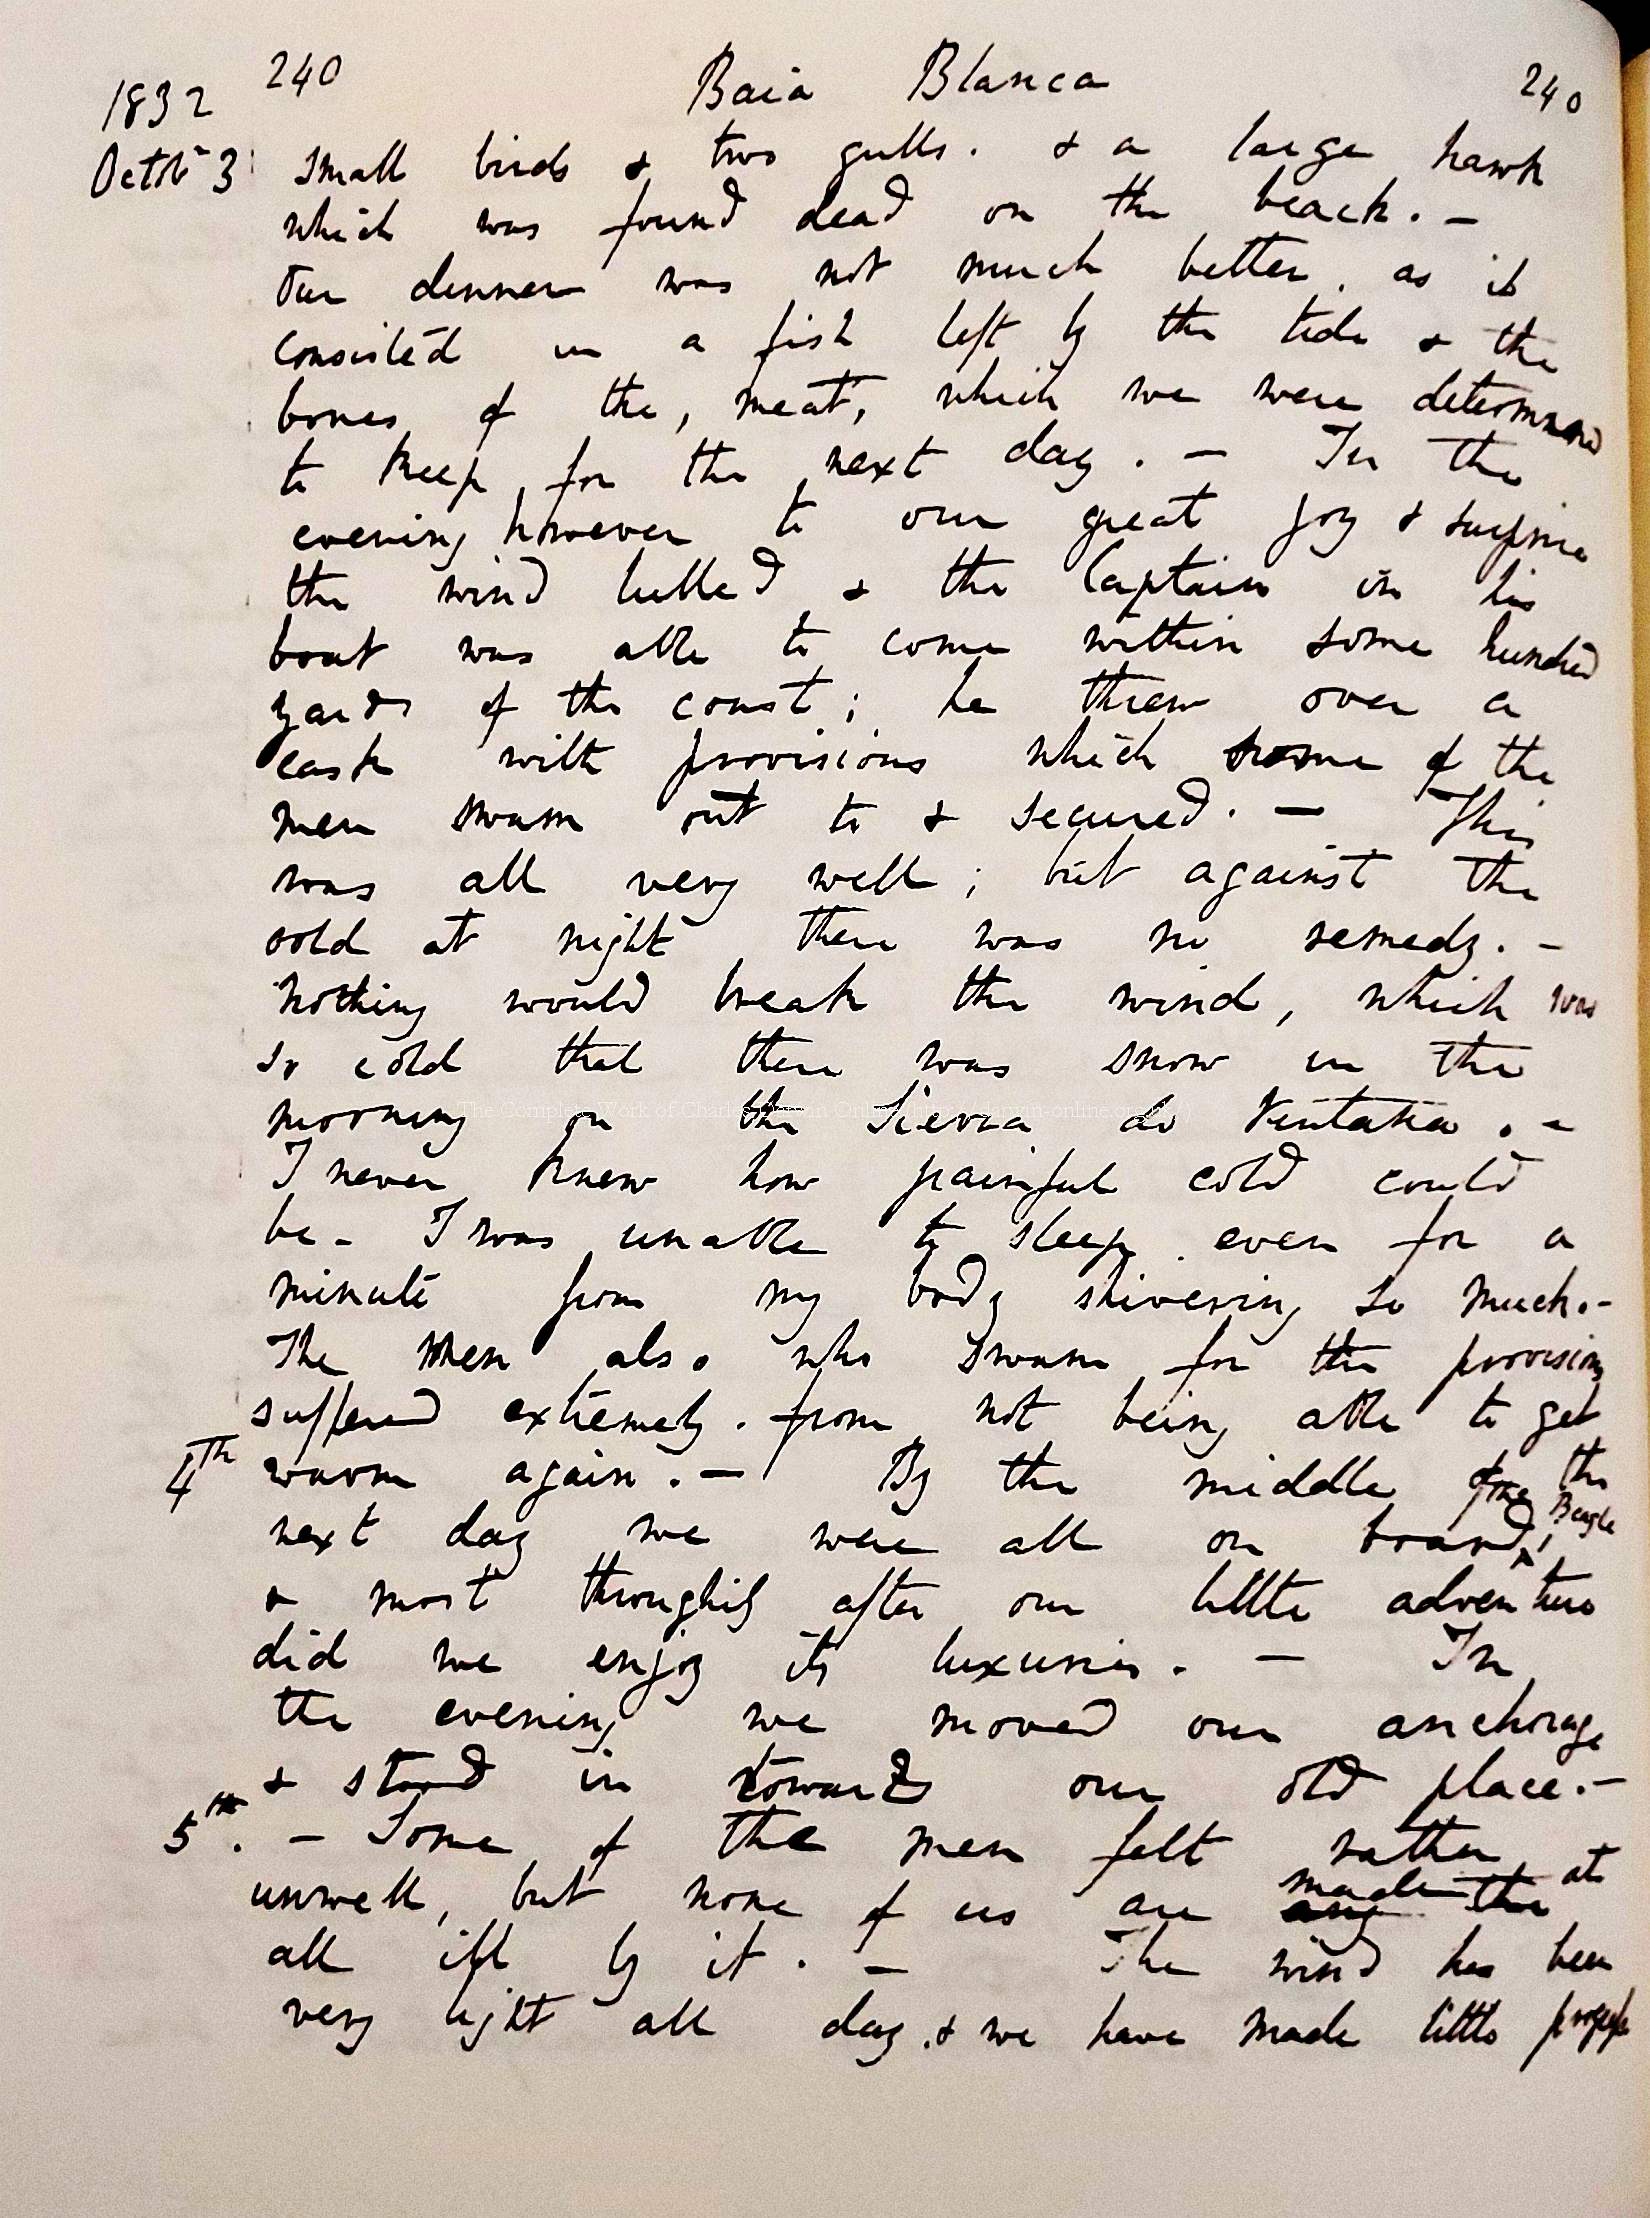 240 Baia Blanca 240
1832
Octbr 3 small birds & two gulls. & a large hawk
which was found dead on the beach. —
Our dinner was not much better, as it
consisted in a fish left by the tide & the
bones of the, meat, which we were determined
to keep for the next day. — In the
evening however to our great joy & surprise
the wind lulled & the Captain in his
boat was able to come within some hundred
yards of the coast; he threw over a
cask with provisions which some of the
men swam out to & secured. — This
was all very well; but against the
cold at night there was no remedy. —
Nothing would break the wind, which was
so cold that there was snow in the
morning on the Sierra de Ventana. —
I never knew how painful cold could
be. I was unable to sleep even for a
minute from my body shivering so much. —
The men also who swam for the provisions
suffered extremely. from not being able to get
4th warm again. — By the middle of the
next day we were all on board the Beagle,
& most thoroughily after our little adventure
did we enjoy its luxuries. — In
the evening we moved our anchorage
& stood in towards our old place. —
5th. — Some of the men felt rather
unwell, but none of us are any the made at
all ill by it. — The wind has been
very light all day. & we have made little
The Complete Work of Charles Darwin Online